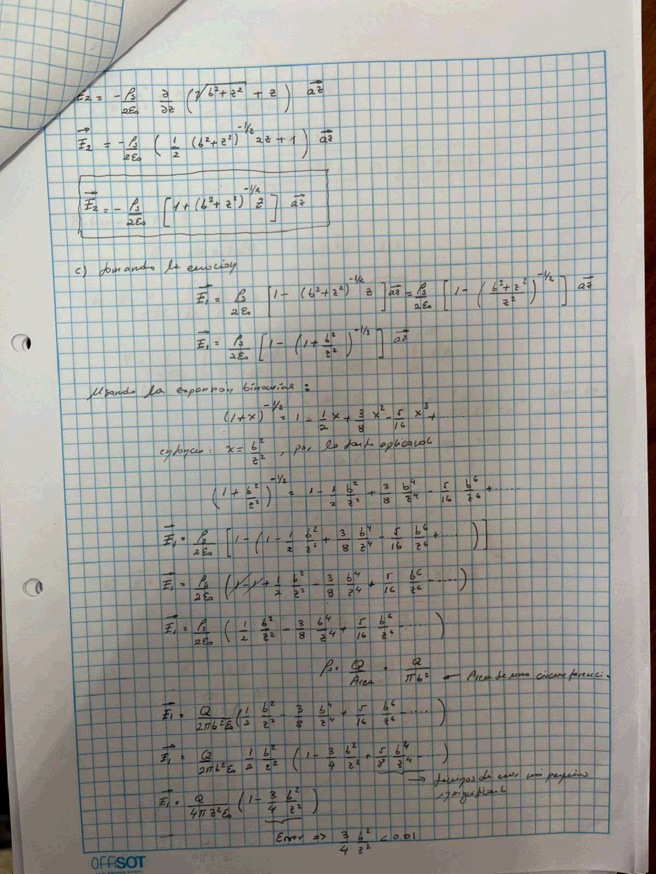 E₂ = -ρs/2ε₀ ∂/∂z (√(b²+z²) + z) az
E₂ = -ρs/2ε₀ (1/2 (b²+z²)^(-1/2) 2z + 1) az
E₂ = -ρs/2ε₀ [1 + (b²+z²)^(-1/2) z] az
c) Tomando la
E₁ = ρs/2ε₀ [1 - (b²+z²)^(-1/2) z] az = ρs/2ε₀ [1 - ((b²+z²)/z²)^(-1/2)] az
E₁ = ρs/2ε₀ [1 - (1 + b²/z²)^(-1/2)] az
Usando la expansion binomial :
(1+x)^(-1/2) = 1 - 1/2 x + 3/8 x² - 5/16 x³ + ...
x = b²/z² , por lo tanto
(1 + b²/z²)^(-1/2) = 1 - 1/2 b²/z² + 3/8 b⁴/z⁴ - 5/16 b⁶/z⁶ + ......
E₁ = ρs/2ε₀ [1 - (1 - 1/2 b²/z² + 3/8 b⁴/z⁴ - 5/16 b⁶/z⁶ + ....)]
E₁ = ρs/2ε₀ (1 - 1 + 1/2 b²/z² - 3/8 b⁴/z⁴ + 5/16 b⁶/z⁶ - .....)
E₁ = ρs/2ε₀ (1/2 b²/z² - 3/8 b⁴/z⁴ + 5/16 b⁶/z⁶ - .....)
ρs = Q/Area = Q/πb² ← Area de una circunferencia.
E₁ = Q/2πb²ε₀ (1/2 b²/z² - 3/8 b⁴/z⁴ + 5/16 b⁶/z⁶ - .....)
E₁ = Q/2πb²ε₀ 1/2 b²/z² (1 - 3/4 b²/z² + 5/8 b⁴/z⁴ - ...)
E₁ = Q/4πz²ε₀ (1 - 3/4 b²/z²)
Error => 3/4 b²/z² < 0.01
OFFISOT